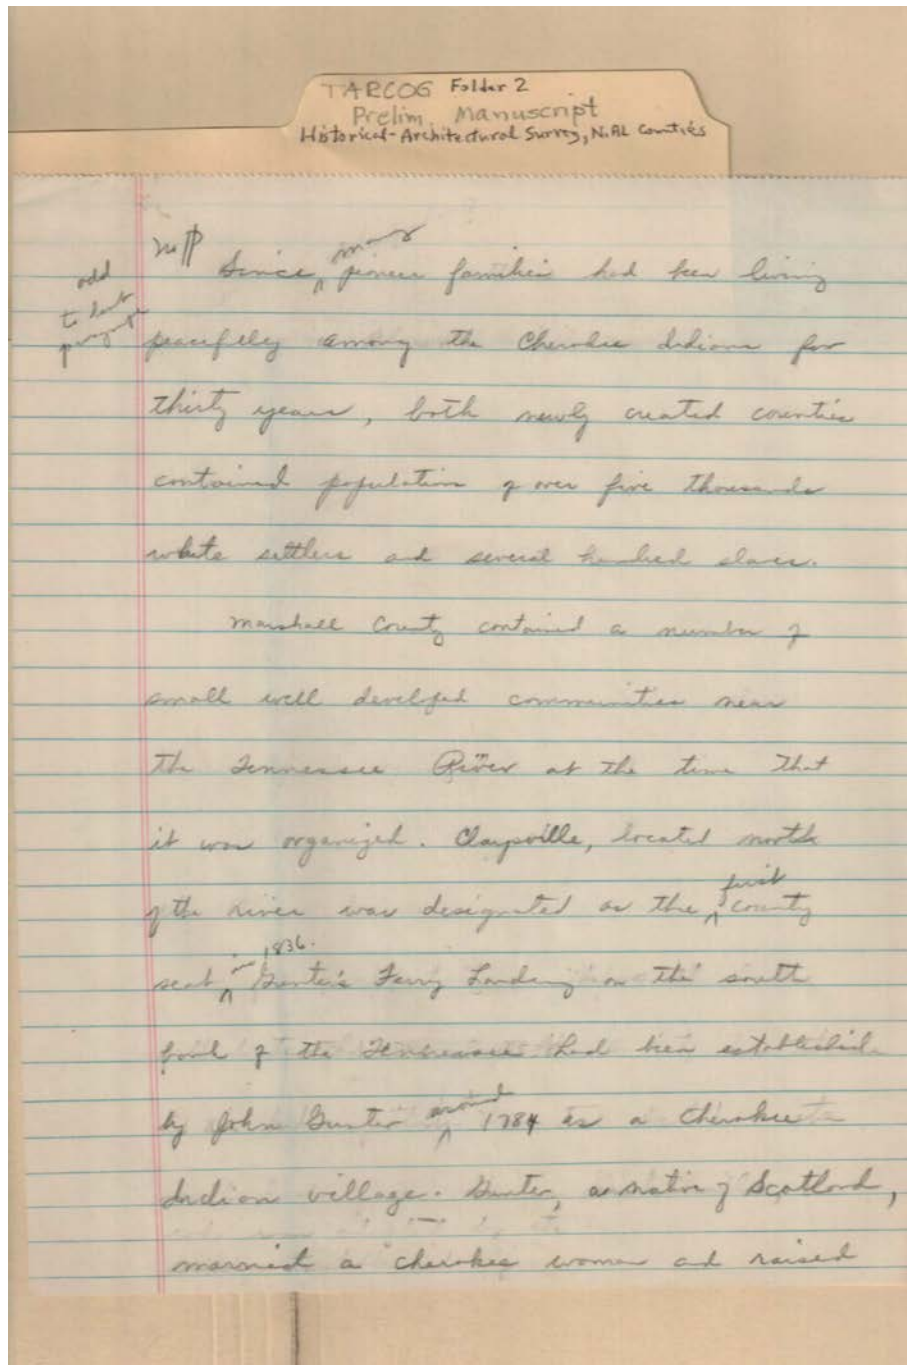 TARCOG Folder 2
Prelim. Manuscript
Historical-Architectural Survey, N. AL Counties
no ¶
many
Since ^ pioneer families had been living
add
to last
peacefully among the Cherokee Indians for
thirty years, both newly created counties
contained population of over five thousands
white settlers and several hundred slaves.
Marshall County contained a number of
small well develped communities near
the Tennessee River at the time that
it was organized. Claysville, located north
first
of the River was designated as the ^ county
in 1836.
seat ^ Gunter's Ferry Landing on the south
of the Tennessee had been established
around
by John Gunter ^ 1784 as a Cherokee
Indian village. Gunter, a native of Scotland,
married a Cherokee woman and raised